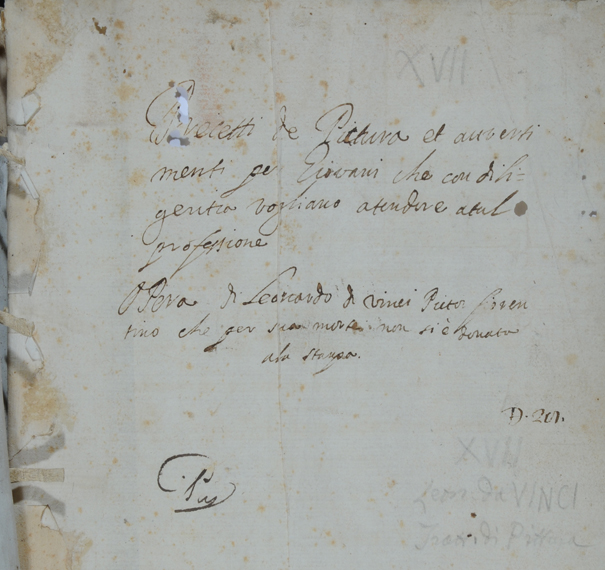 XVII
Precetti de Pictura et averti
menti per Giovani che con dili-
gentia vogliano atendere a tal
professione
Opera di Leonardo di vinci Pictor fioren
tino che per sua morte non si è donata
ala stampa.
D. 201.
XVII
Leonardo VINCI
Tratt. di Pittura